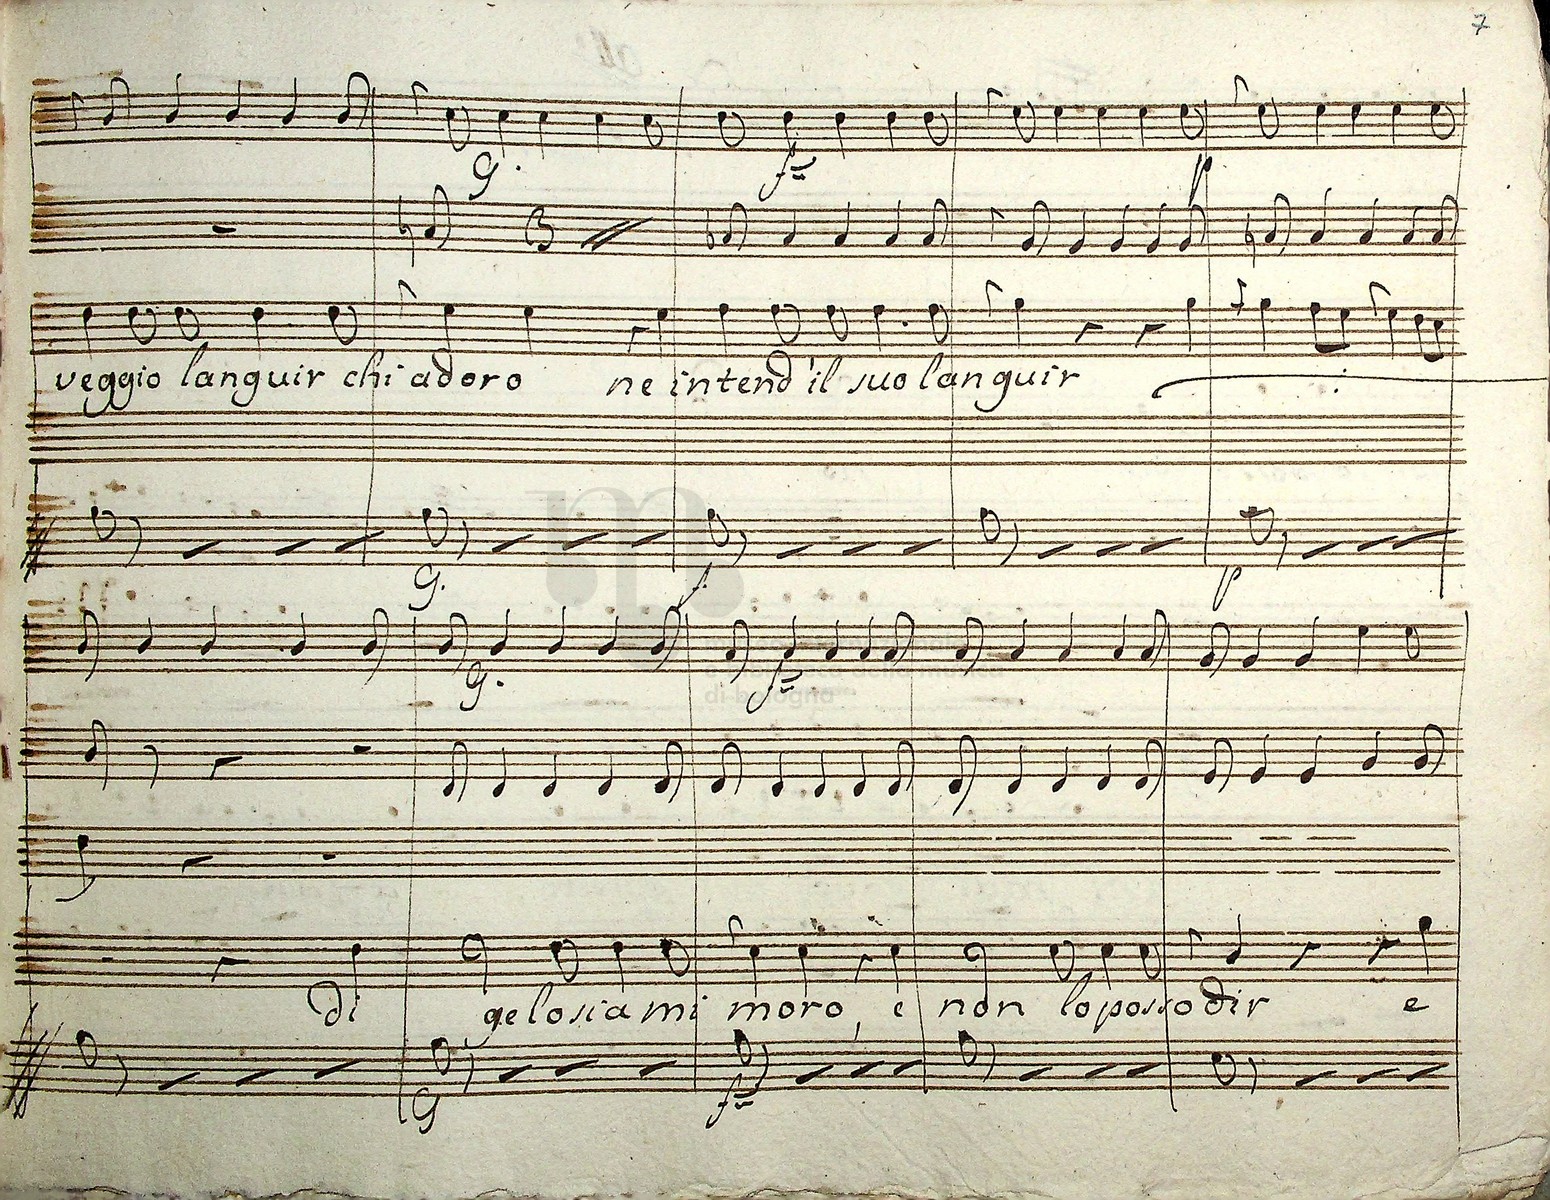 7
G. f p
veggio languir chi adoro ne intend' il suo languir
G. f p
G. f
museo internazionale
e biblioteca della musica
di bologna
di gelosia mi moro e non lo posso dir e
G f